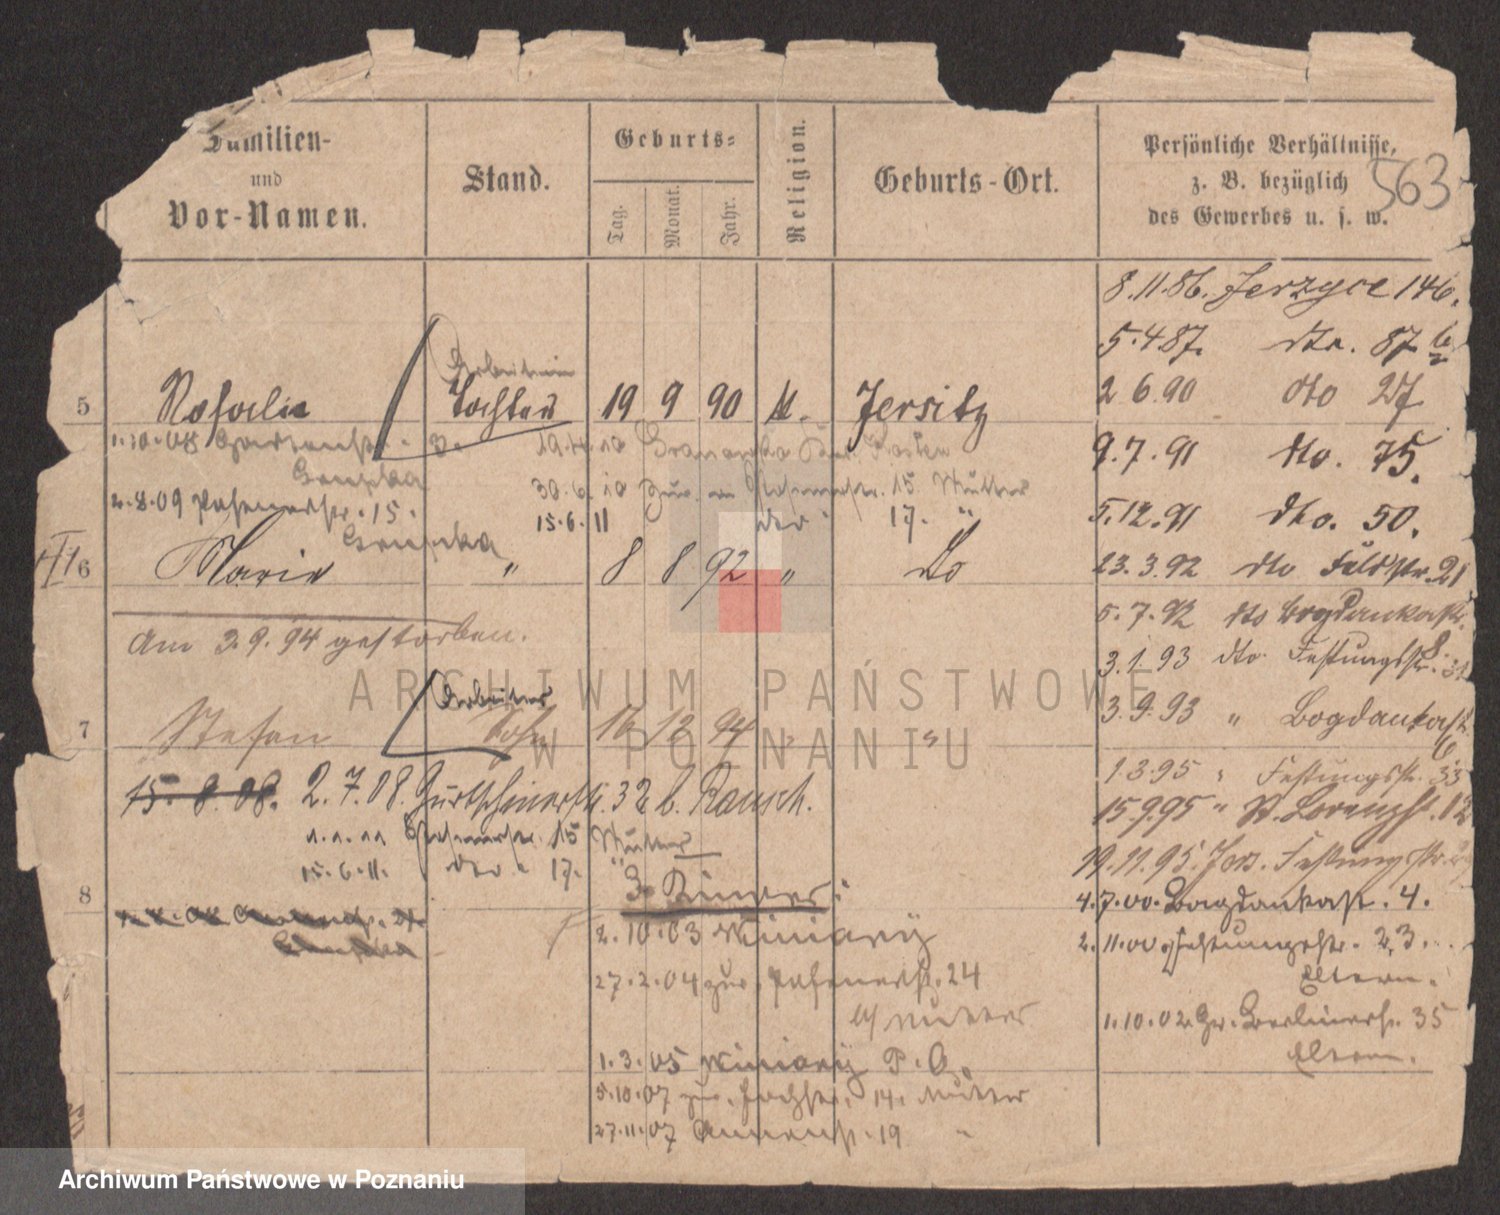 Familien-
und
Vor-Namen.
Stand.
Geburts-
Tag.
Monat.
Jahr.
Religion.
Geburts-Ort.
Persönliche Verhältnisse,
z. B. bezüglich
des Gewerbes u. s. w.
563
8.11.86. Jerzyce 146.
5.4.87. dto. 87 b
2.6.90 dto 27
9.7.91 dto. 75.
5.12.91 dto. 50.
23.3.92 dto Feldstr. 21
5.7.92 dto Bogdankastr.
3.1.93 dto. Festungsstr.
3.9.93 " Bogdankastr.
6
1.3.95 " Festungsstr. 33
15.9.95 " St. Lorenzstr. 12
19.11.95. Jers. Festungsstr.
4.7.00. Bogdankastr. 4.
2.11.00. Festungsstr. 23.
Eltern.
1.10.02. Gr. Berlinerstr. 35
Eltern.
Arbeiterin
5 Rosalie Tochter 19 9 90 k. Jersitz
1.10.08 Gartenstr.
19.4.10
30.6.10 zur. 15. Mutter
2.8.09 Posenerstr. 15.
15.6.11 dto 17. "
6 Marie " 8 8 92 " do
Am 3.9.94 gestorben.
Arbeiter
7 Stefan Sohn 16 12 94 " "
15. 8. 08. 2.7.08. 32 b. Rausch.
1.1.11 15 Mutter
15.6.11. dto 17. "
8
3 Kinder:
2.10.03 Winiary
27.2.04 zur. Posenerstr. 24
b/ Mutter
1.3.05 Winiary P. O.
5.10.07 zur. 14. Mutter
27.11.07 19 "
ARCHIWUM PAŃSTWOWE
W POZNANIU
Archiwum Państwowe w Poznaniu